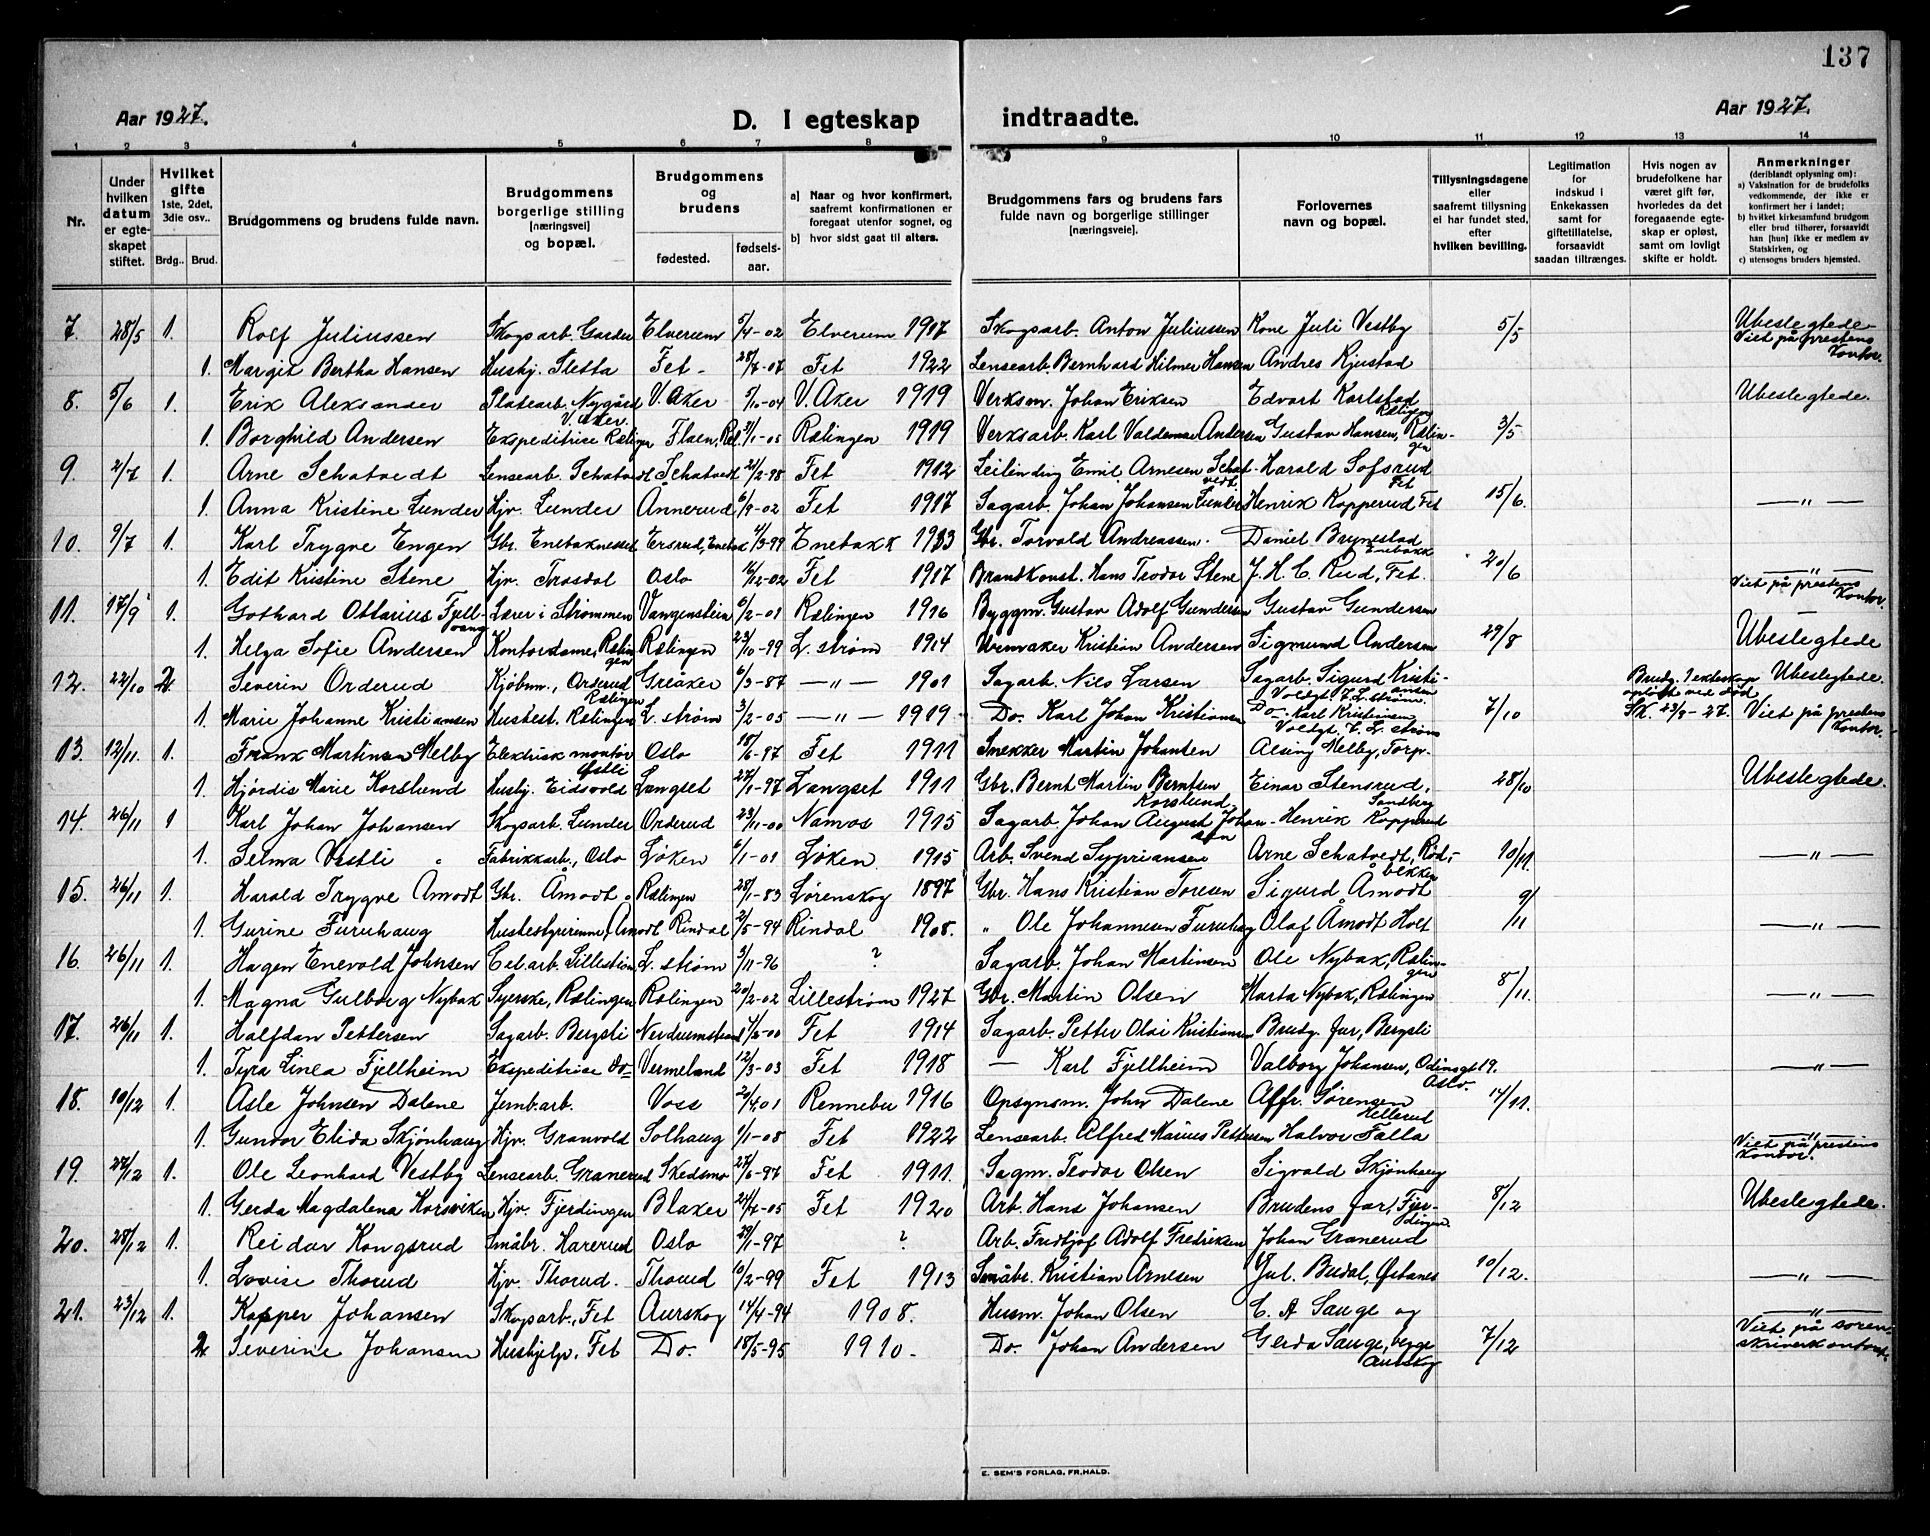 137
Aar 1927. D. I egteskap indtraadte. Aar 1927.
1 2 3 4 5 6 7 8 9 10 11 12 13 14
Nr.
Under hvilken datum er egteskapet stiftet.
Hvilket gifte 1ste, 2det, 3die osv..
Brdg.. Brud.
Brudgommens og brudens fulde navn.
Brudgommens borgerlige stilling [næringsvei] og bopæl.
Brudgommens og brudens
fødested. fødsels-aar.
a) Naar og hvor konfirmert, saafremt konfirmationen er foregaat utenfor sognet, og
b) hvor sidst gaat til alters.
Brudgommens fars og brudens fars fulde navn og borgerlige stillinger [næringsveie].
Forlovernes navn og bopæl.
Tillysningsdagene eller saafremt tillysning ei har fundet sted, efter hvilken bevilling.
Legitimation for indskud i Enkekassen samt for giftetillatelse, forsaavidt saadan tiltrænges.
Hvis nogen av brudefolkene har været gift før, hvorledes da det foregaaende egteskap er opløst, samt om lovligt skifte er holdt.
Anmerkninger (deriblandt oplysning om):
a) Vaksination for de brudefolks vedkommende, der ikke er konfirmert her i landet;
b) hvilket kirkesamfund brudgom eller brud tilhører, forsaavidt han [hun] ikke er medlem av Statskirken, og
c) utensogns bruders hjemsted.
7. 28/5 1. Rolf Juliussen Skogsarb. Garder Elverum 5/4-02 Elverum 1917 Skogsarb. Anton Juliussen Kone Juli Vestby 5/5 Ubeslegtede. Viet på prestens kontor.
1. Margit Bertha Hansen Hushj. Sletta Fet - 28/7-07 Fet 1922 Lensearb. Bernhard Hilmer Hansen Andres Kjustad
8. 5/6 1. Erik Aleksander Platearb. Nygård V. Aker V. Aker 5/10-04 V. Aker 1919 Verksm. Johan Eriksen Edvart Karlstad Rælingen Ubeslegtede.
1. Borghild Andersen Ekspeditrise Rælingen Flaen, Ræl. 3/1-05 Rælingen 1919 Verksarb. Karl Valdemar Andersen Gustav Hansen, Rælingen 3/5
9. 2/7 1. Arne Schatvedt Lensearb. Schatvedt Schatvedt 21/2-98 Fet 1912 Leilending Emil Arnesen Schatvedt Harald Sofsrud Fet
1. Anna Kristine Lunder Hjv. Lunder Ånnerud 6/9-02 Fet 1917 Sagarb. Johan Johansen Lunder Henrik Kopperud Fet 15/6. — " —
10. 9/7 1. Karl Trygve Engen Gbr. Enebaknesset Ersrud, Enebak 4/3-99 Enebakk 1913 Gbr. Torvald Andreassen. Daniel Brynestad Enebakk
1. Edit Kristine Stene Hjv. Trosdal Oslo 16/12-02 Fet 1917 Brandkonst. Hans Teodor Stene J. H. C. Rud, Fet. 20/6 — " — Viet på prestens kontor.
11. 17/9 1. Gothard Ottarius Fjellvang Lærer i Strømmen Vangenstein 6/2-01 Rælingen 1916 Byggm. Gustav Adolf Gundersen Gustav Gundersen
1. Helga Sofie Andersen Kontordame, Rælingen Rælingen 23/10-99 L. strøm 1914 Urmaker Kristian Andersen Sigmund Andersen 29/8 Ubeslegtede
12. 22/10 2. Severin Orderud Kjøbm., Orderud Rælingen Greåker 6/3-87 — " — 1901 Sagarb. Nils Larsen Sagarb. Sigurd Kristiansen Voldgt. 7 L. strøm. Brudg. I ekteskap opløst ved død Sk. 23/9 - 27. Ubeslegtede.
1. Marie Johanne Kristiansen Husbest. Rælingen L. strøm 3/2-05 — " — 1919 Do. Karl Johan Kristiansen Do. Karl Kristiansen Voldgt. 7 L. strøm 7/10 Viet på prestens kontor.
13. 12/11 1. Frank Martinsen Melby Elektrisk montør Østli Oslo 18/6-97 Fet 1911 Snekker Martin Johansen Alsing Melby, Torp.
1. Hjørdis Marie Korslund Hushj. Eidsvold Langset 27/1-97 Langset 1911 Gbr. Bernt Martin Berntsen Korslund Einar Stensrud, Sandberg 28/10 Ubeslegtede.
14. 26/11 1 Karl Johan Johansen Skogsarb. Lunder Orderud 23/11-00 Namos 1915 Sagarb. Johan August Johansen Henrik Kopperud
1. Selma Vestli Fabrikkarb., Oslo Løken 6/1-01 Løken. 1915 Arb. Svend Sypriansen Arne Schatvedt, Rødbekken 10/11. — " —
15. 26/11 1. Harald Trygve Åmodt Gbr. Åmodt Rælingen 28/1-83 Lørenskog 1897 Gbr. Hans Kristian Toresen Sigurd Åmodt
1. Gurine Furuhaug Husbestyrerinne, Åmodt Rindal 2/5-94 Rindal 1908. " Ole Johannesen Furuhaug Olaf Åmodt Holt 9/11 — " —
16. 26/11 1. Hagen Enevold Johnsen Cel.arb. Lillestrøm L. strøm 3/11-96 ? Sagarb. Johan Martinsen Ole Nybak, Rælingen
1. Magna Gulborg Nybak Syerske, Rælingen Rælingen 20/2-02 Lillestrøm 1927 Gbr. Martin Olsen Marta Nybak, Rælingen 8/11. — " —
17. 26/11 1. Halfdan Pettersen Sagarb. Bergsli Nerdrumstrand 1/2-00 Fet 1914 Sagarb. Petter Olai Kristiansen Brudg. far, Bergsli
1. Tyra Linea Fjellheim Ekspeditrise Do Vermeland 12/3-03 Fet 1918 — Karl Fjellheim Valborg Johansen, Odinsgt 19. Oslo. — " —
18. 10/12 1. Asle Johnsen Dalene Jernb.arb. Voss 2/4.01 Rennebu 1916 Opsynsm. John Dalene Alfr. Sørensen Hellerud 14/11.
1. Gundor Elida Skjønhaug Hjv. Granvold Solhaug 1/1-08 Fet 1922 Lensearb. Alfred Marius Pettersen Halvor Falla — " — Viet på prestens kontor.
19. 27/12 1. Ole Leonhard Vestby Lensearb. Granerud Skedsmo 27/6-97 Fet 1911. Sagm. Teodor Olsen Sigvald Skjønhaug
1. Gerda Magdalena Korsviken Hjv. Fjerdingen Blaker 24/4-05 Fet 1920 Arb. Hans Johansen Brudens far, Fjerdingen 8/12 Ubeslegtede.
20. 28/12 1. Reidar Kongsrud Småbr. Harerud Oslo 29/1-97 ? Arb. Fridtjof Adolf Fredriksen Johan Granerud
1. Lovise Thorud Hjv. Thorud. Thorud 6/2-99 Fet 1913 Småbr. Kristian Arnesen Jul. Budal, Østanes 10/12. — " —
21. 23/12 1. Kasper Johansen Skogsarb., Fet Aurskog 14/4-94 1908. Husm. Johan Olsen C. A Sauge og — " —
2. Severine Johansen Hushjelp, Fet Do. 18/5-95 1910. Do. Johan Andersen Gerda Sauge, begge Aurskog 7/12 Viet på sorenskriverkontoret.
E. SEM'S FORLAG, FR.HALD.